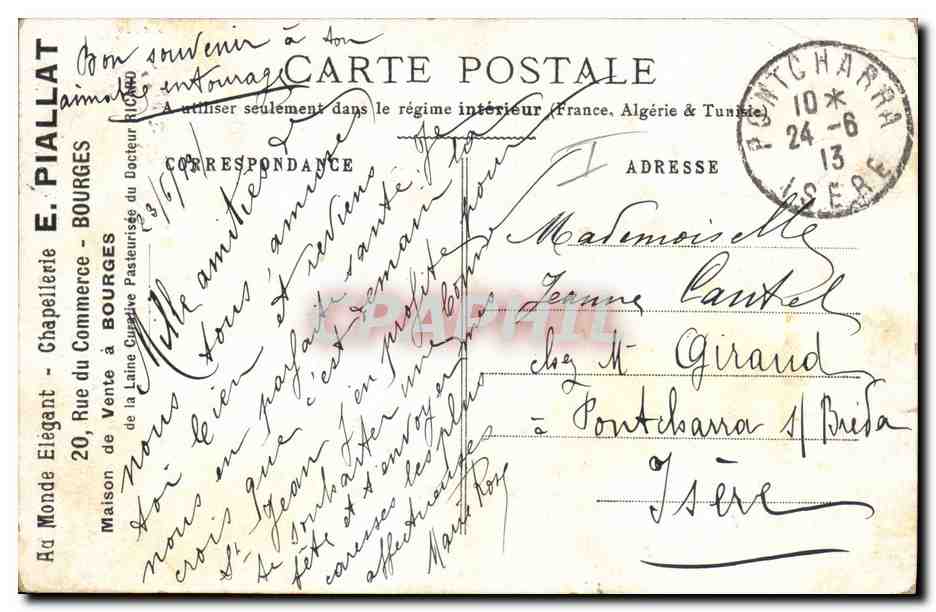 Bon souvenir à ton
aimable entourage
CARTE POSTALE
A utiliser seulement dans le régime intérieur (France, Algérie & Tunisie)
CORRESPONDANCE
ADRESSE
Au Monde Elégant - Chapellerie E. PIALLAT
20, Rue du Commerce - BOURGES
Maison de Vente à BOURGES
de la Laine Curative Pasteurisée du Docteur RICARD
23/6/13
Mille amitiés
nous tous
toi le bien et reviens
nous en parfaite santé. Je
crois que c'est demain la
St Jean j'en profite pour
te souhaiter une bonne
fête et t'envoyer mes
caresses les plus
affectueuses
Marie Rose
PONTCHARRA
10 *
24 - 6
13
ISERE
Mademoiselle
Jeanne Cantel
chez Mr Giraud
à Pontcharra s/ Bréda
Isère
CPAPHIL